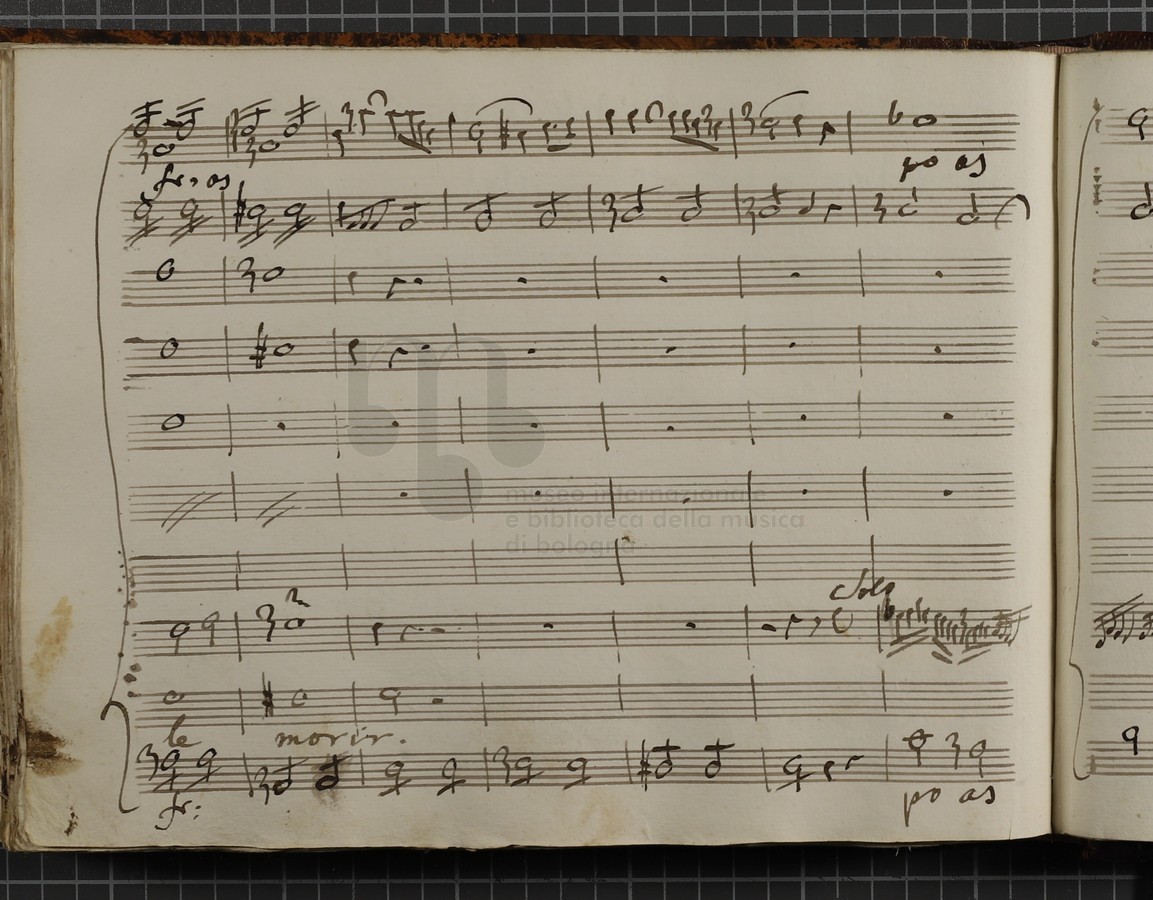 fr, as
po as
museo internazionale
e biblioteca della musica
di bologna
Solo
le morir.
fr:
po as